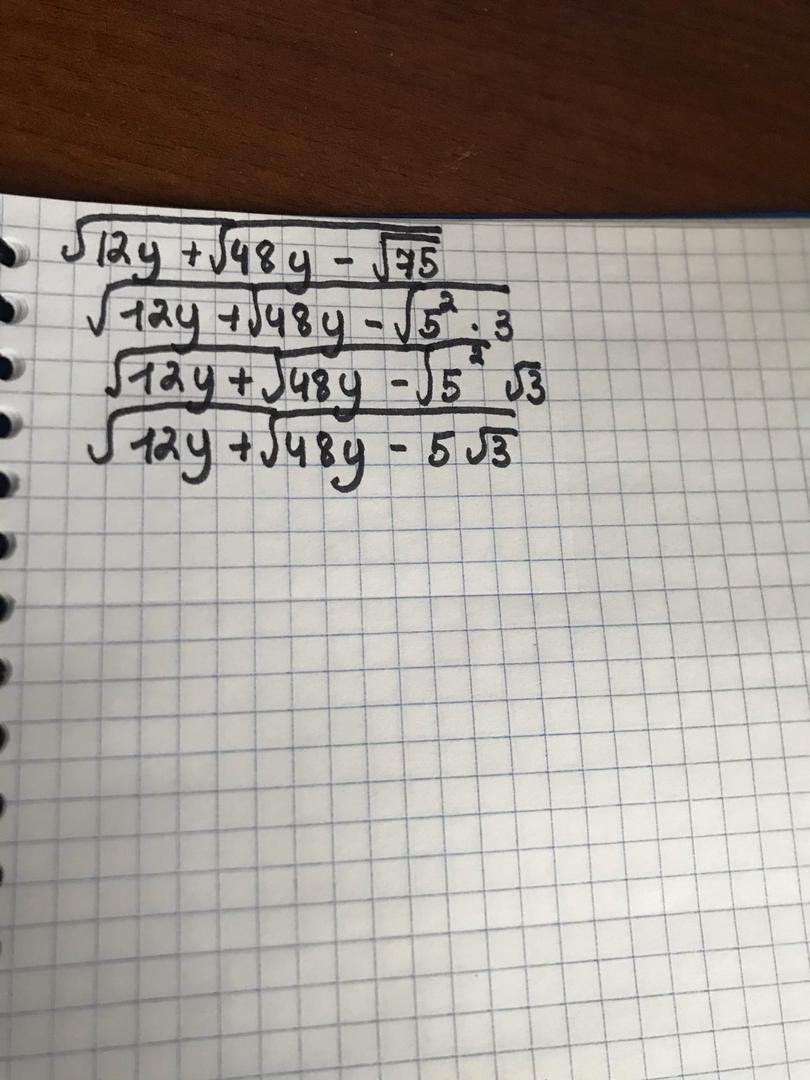 √12y + √48y − √75
√12y + √48y − √5² · 3
√12y + √48y − √5² √3
√12y + √48y − 5 √3